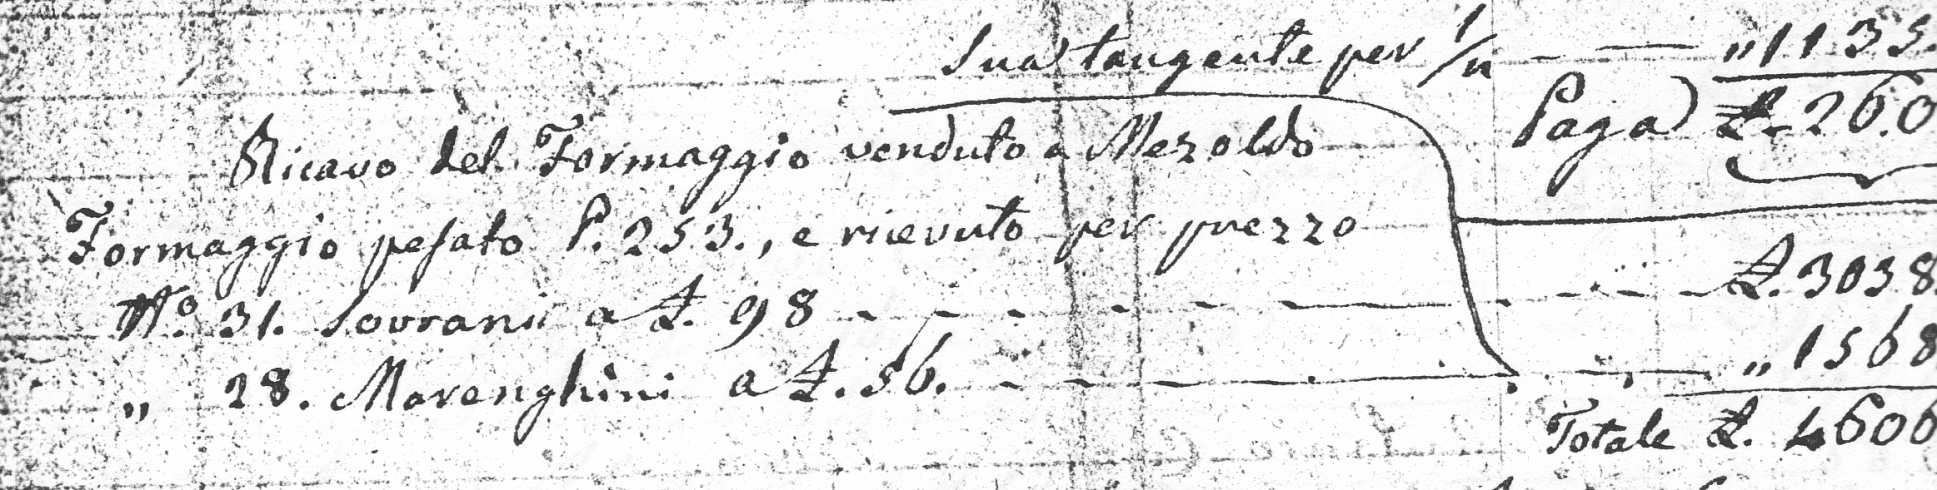 Sua tangente per 1/n — — „ 1135.
Paga £. 260
Ricavo del Formaggio venduto a Mezoldo
Formaggio pesato P. 253., e ricevuto per prezzo
N.º 31. Sovrani a £. 98 - - - - - - £. 3038
„ 28. Marenghini a £. 56. - - - - - „ 1568
Totale £. 4606